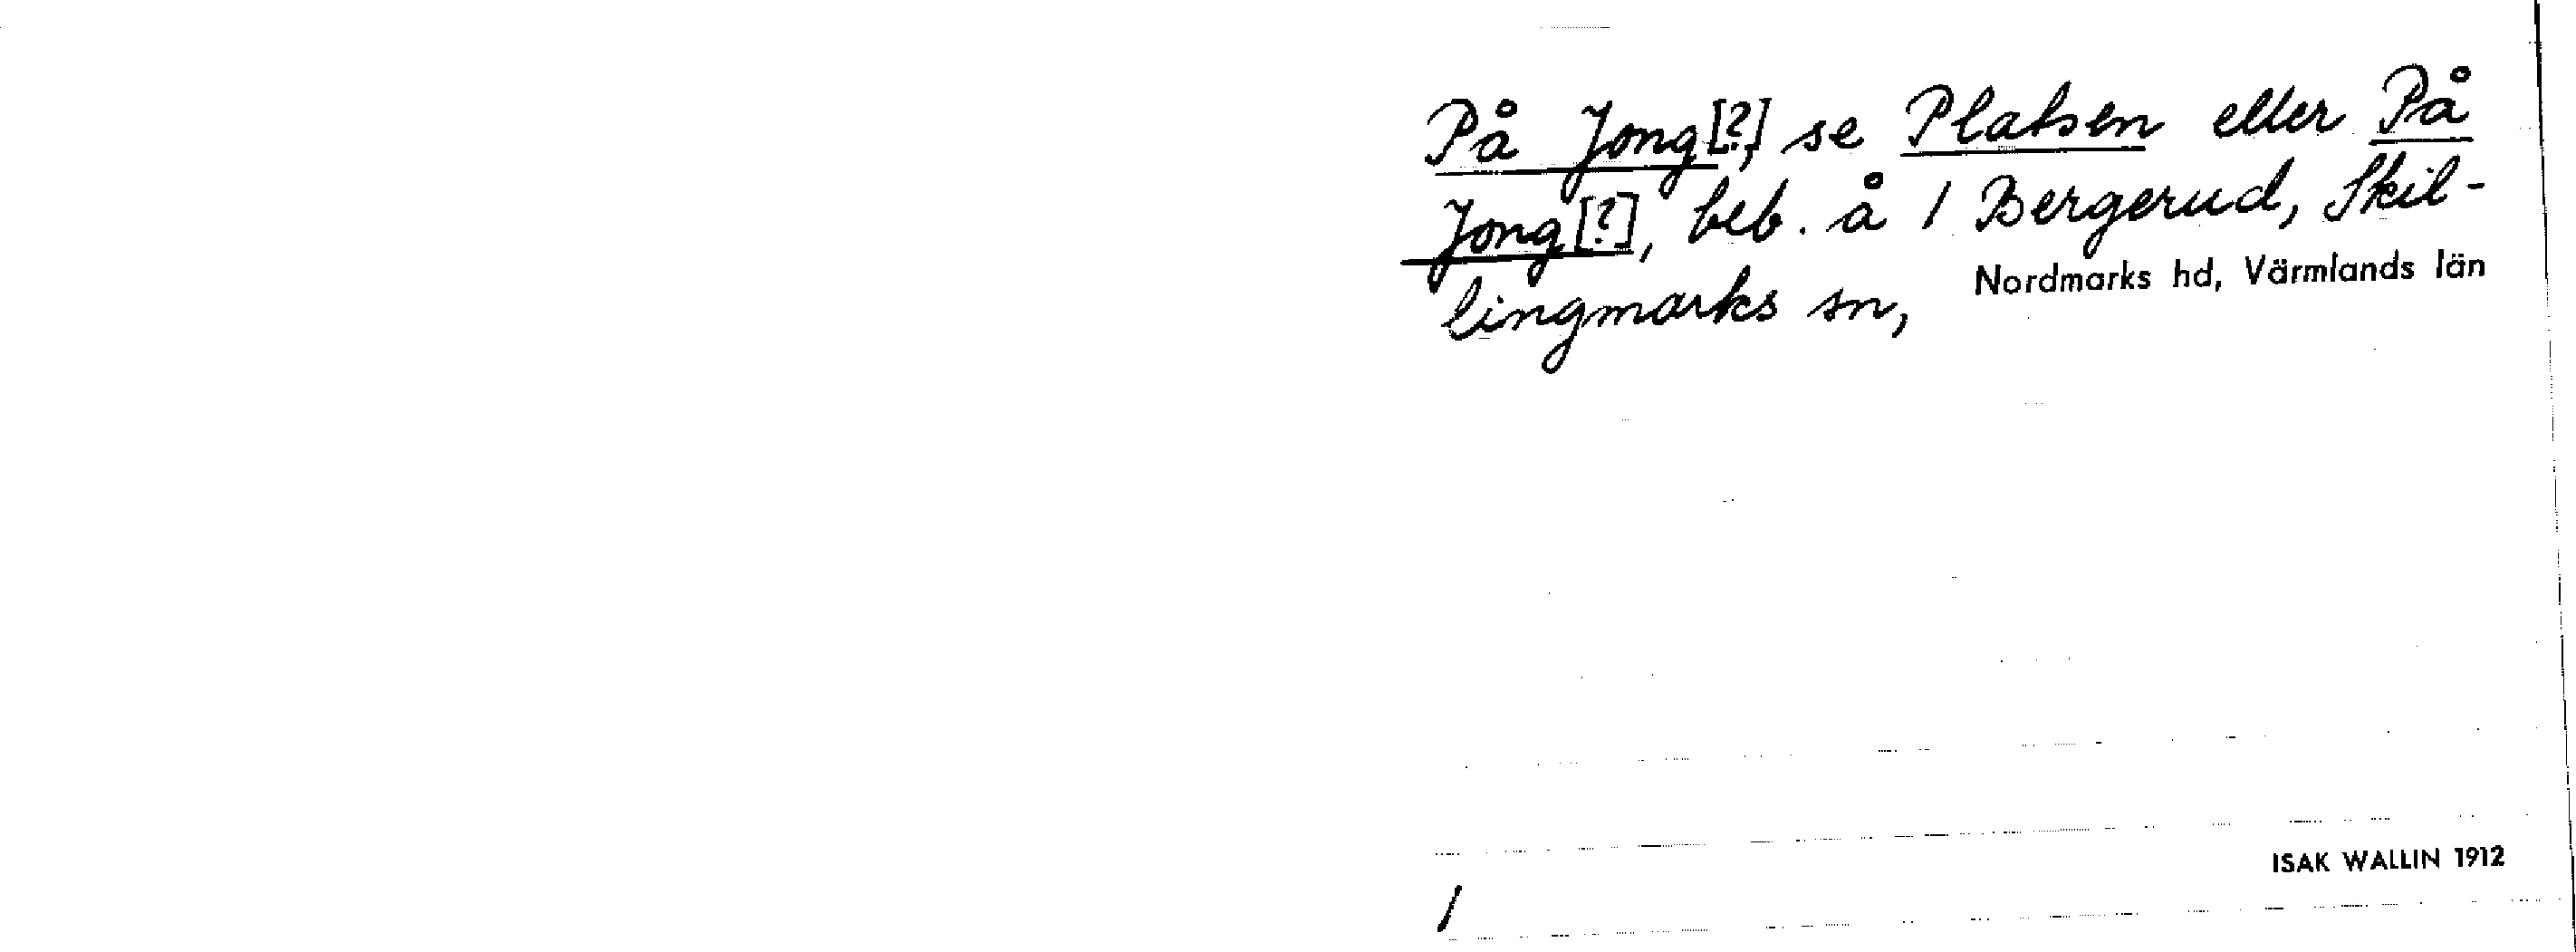 På Jong[?], se Platsen eller På
Jong[?], beb. å 1 Bergerud, Skil-
lingmarks sn, Nordmarks hd, Värmlands län
ISAK WALLIN 1912
1